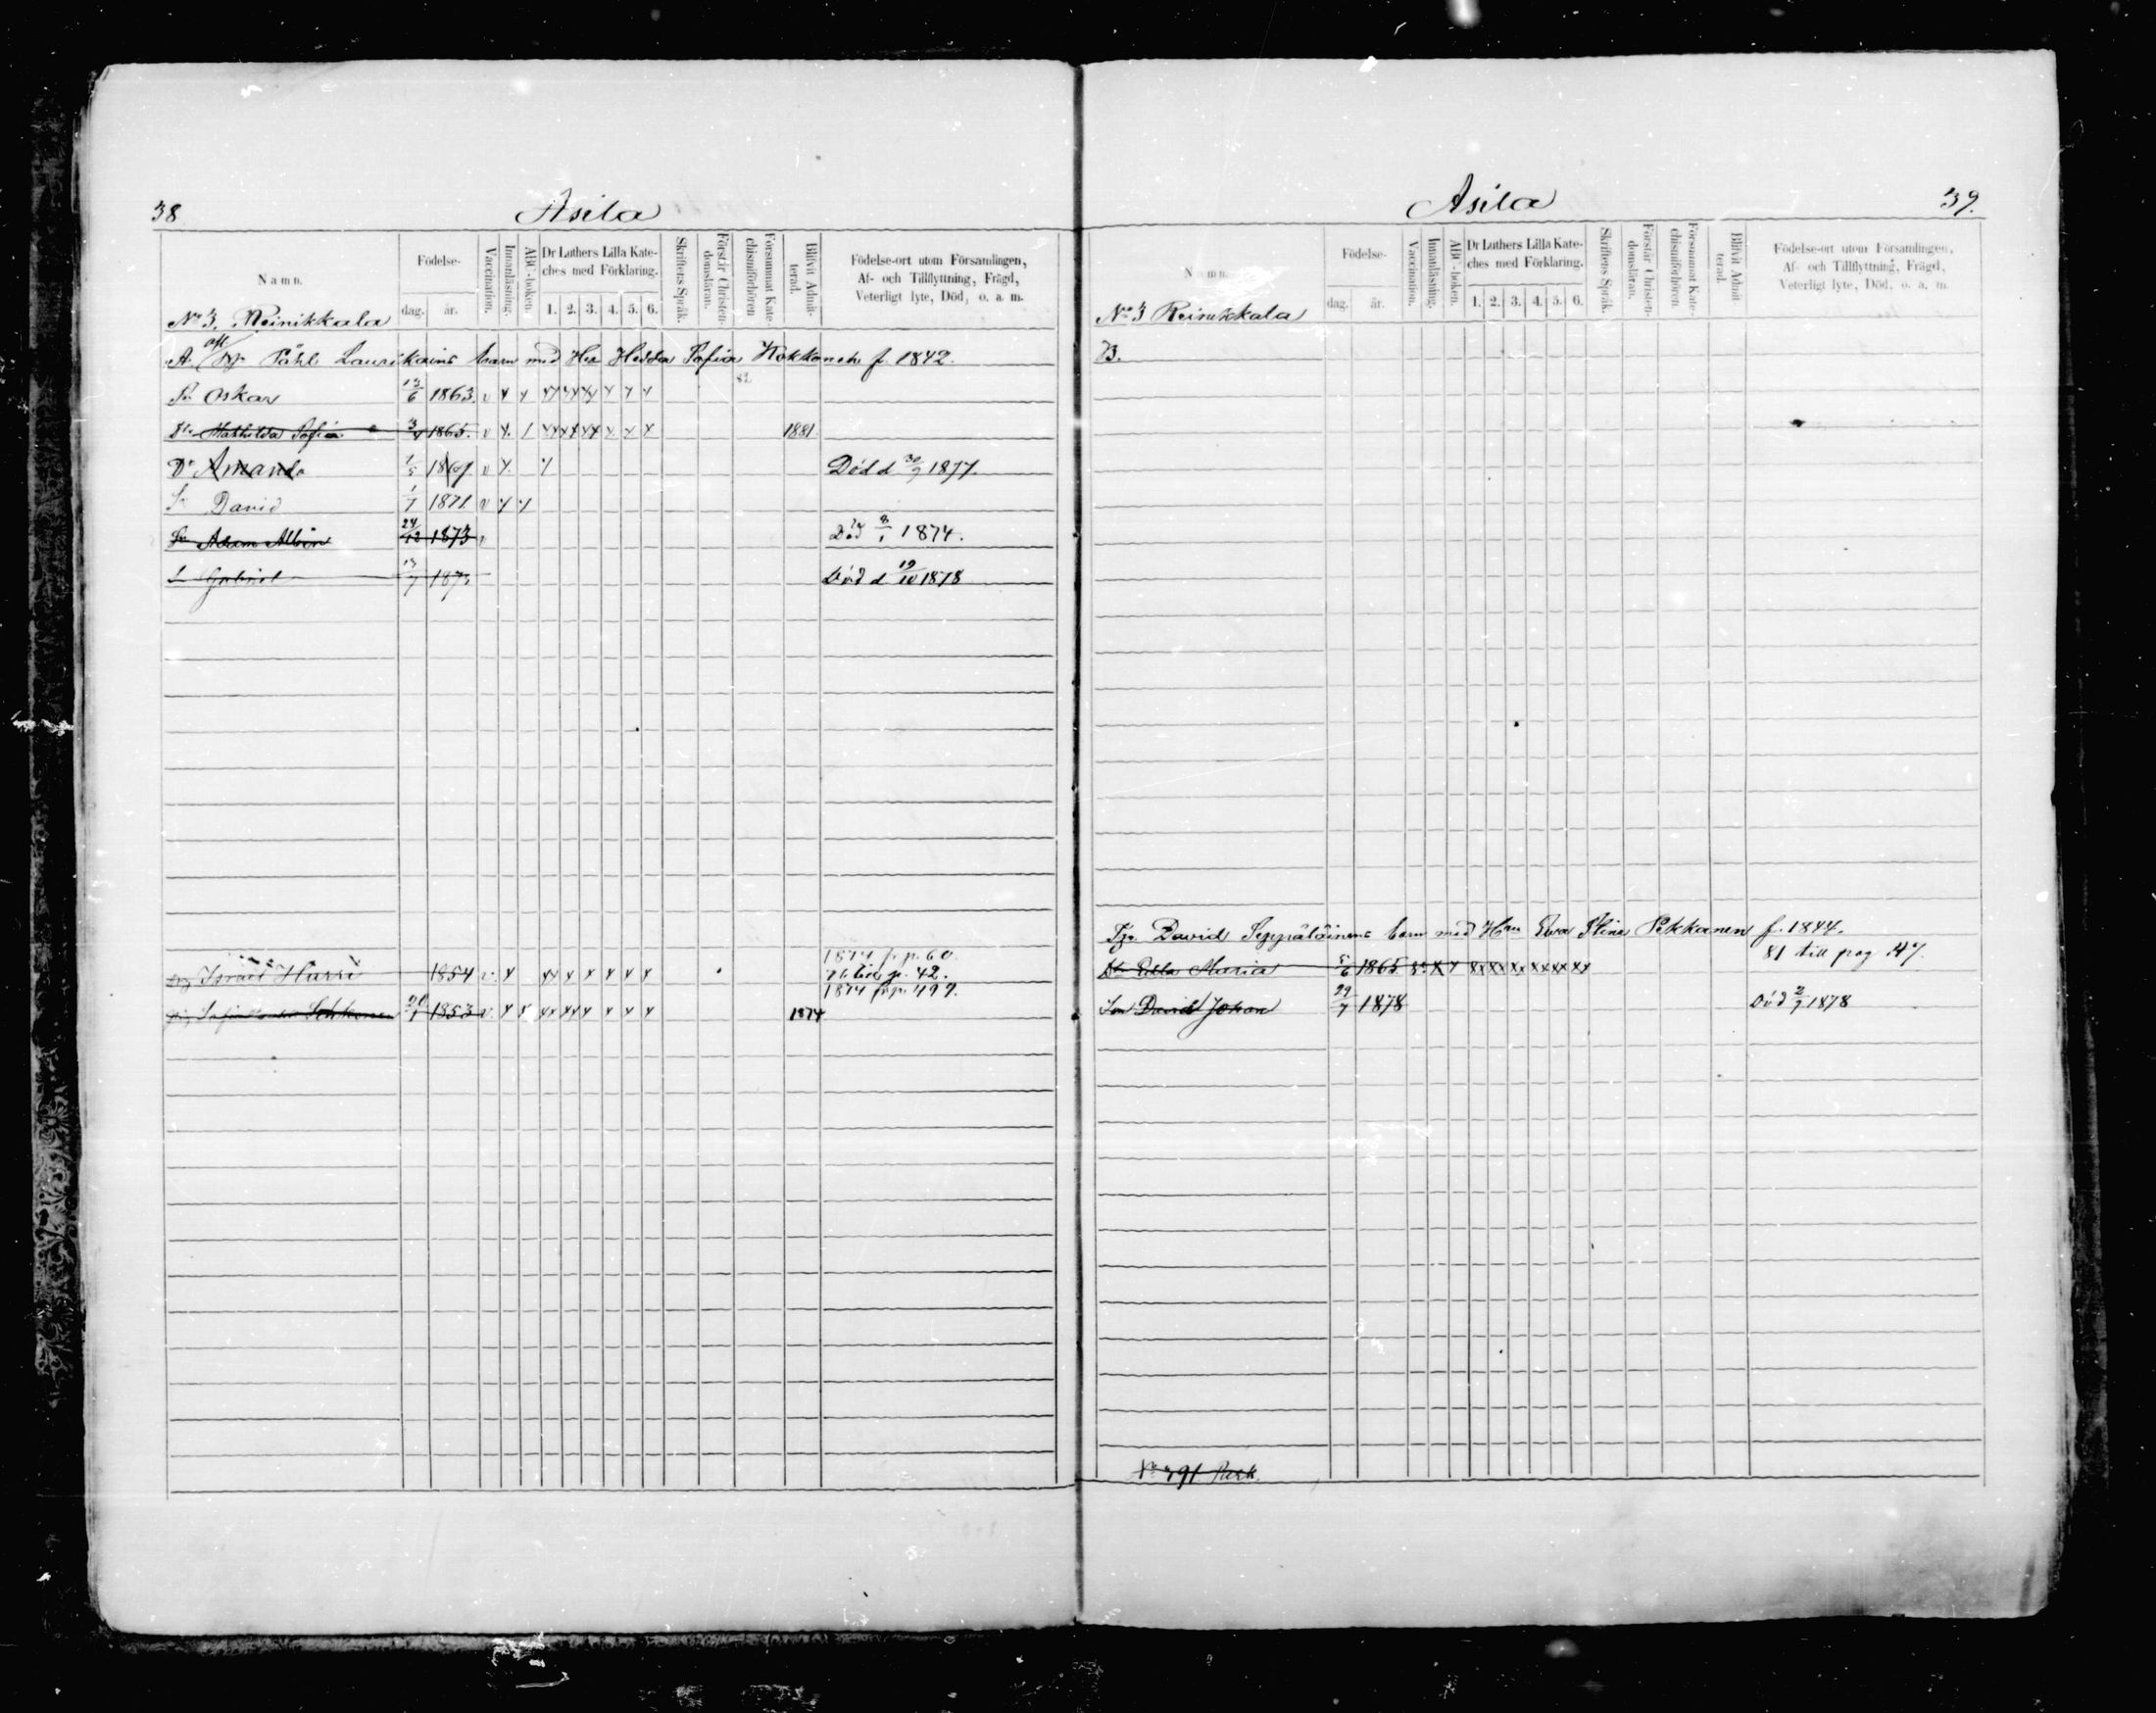 38
Asila
Namn.
Födelse-
dag.
år.
Vaccination.
Innanläsning.
ABC-boken.
Dr Luthers Lilla Kate-
ches med Förklaring.
1. 2. 3. 4. 5. 6.
Skriftens Språk.
Förstår Christen-
domsläran.
Försummat Kate-
chismiförhören
Blifvit Admit-
terad.
Födelse-ort utom Församlingen,
Af- och Tillflyttning, Frägd,
Veterligt lyte, Död, o. a. m.
No 3. Reinikkala
A. Påhl Laurikains barn med Hedda Sofia Kokkonen f. 1842.
Sn Oskar 13/6 1863. v x x
Dr Mathilda Sofia 3/4 1865. v x 1881.
Dr Amanda 1/5 v x Död d 30/9 1877.
Sn David 1/7 1871 v x x
Sn Adam Albin 24/12 1873 Död 1874.
Gabriel 13/7 Död d 19/10 1878
1874 fr. p. 60.
Israel Harri 1854 v. x x x x x x p. 42.
1874 fr. p. 499.
1853 v. x x x x x x 1874
39.
Asila
Namn.
Födelse-
dag.
år.
Vaccination.
Innanläsning.
ABC-boken.
Dr Luthers Lilla Kate-
ches med Förklaring.
1. 2. 3. 4. 5. 6.
Skriftens Språk.
Förstår Christen-
domsläran.
Försummat Kate-
chismiförhören.
Blifvit Admit-
terad.
Födelse-ort utom Församlingen,
Af- och Tillflyttning, Frägd,
Veterligt lyte, Död, o. a. m.
No 3 Reinikkala
B.
David Seppäläinens barn med Eva Stina Pekkanen f. 1844.
81 till pag 47.
Dr Ulla Maria 5/6 1865 x x xx xx xx xx xx xx
Son David Johan 29/7 1878 Död 1878